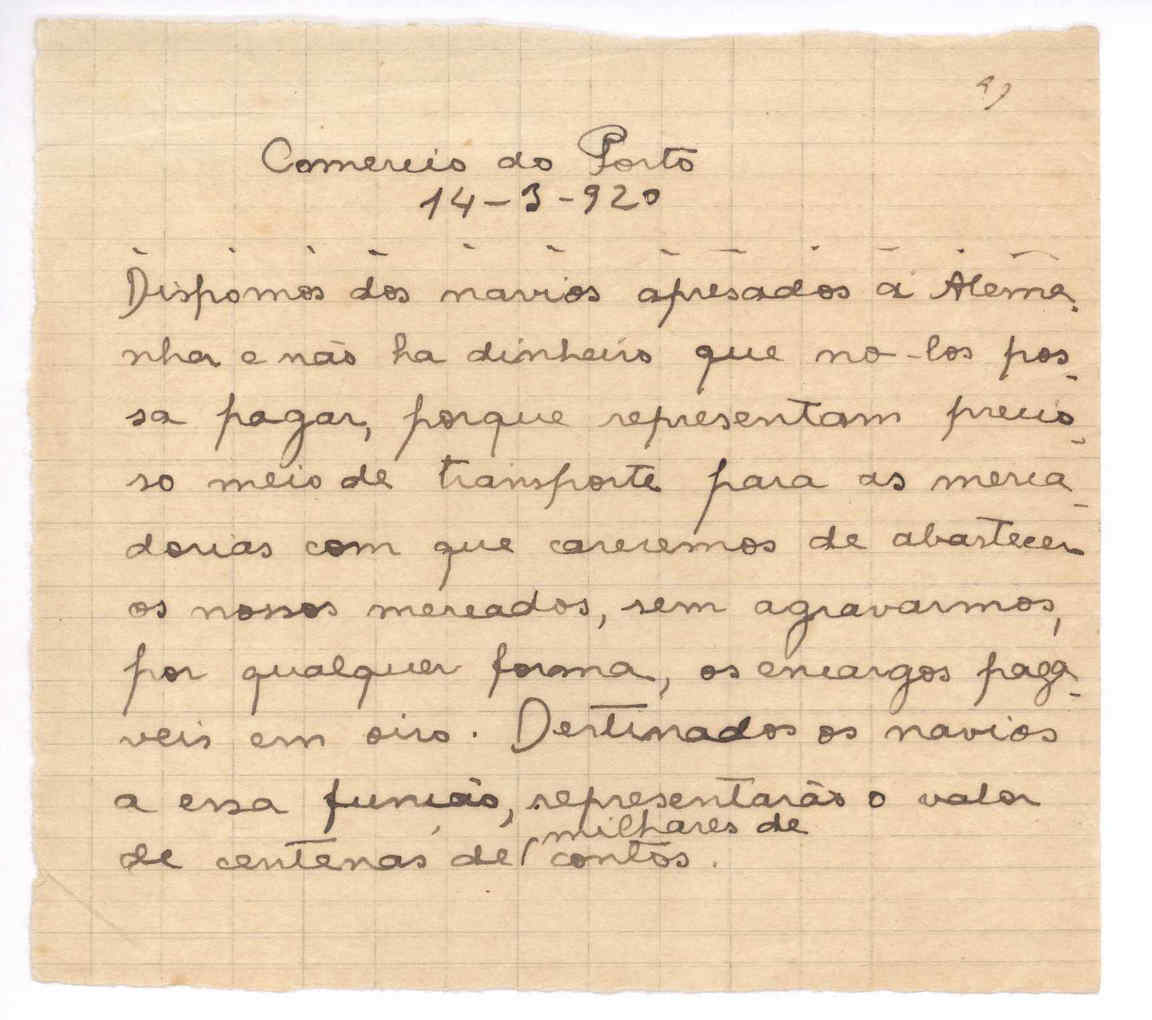 Comercio do Porto
14-3-920
Dispomos dos navios apresados á Alema-
nha e não ha dinheiro que no-los pos-
sa pagar, porque representam precio-
so meio de transporte para as merca-
dorias com que careremos de abastecer
os nossos mercados, sem agravarmos,
por qualquer forma, os encargos paga-
veis em oiro. Destinados os navios
a essa função, representarão o valor
milhares de
de centenas de contos.